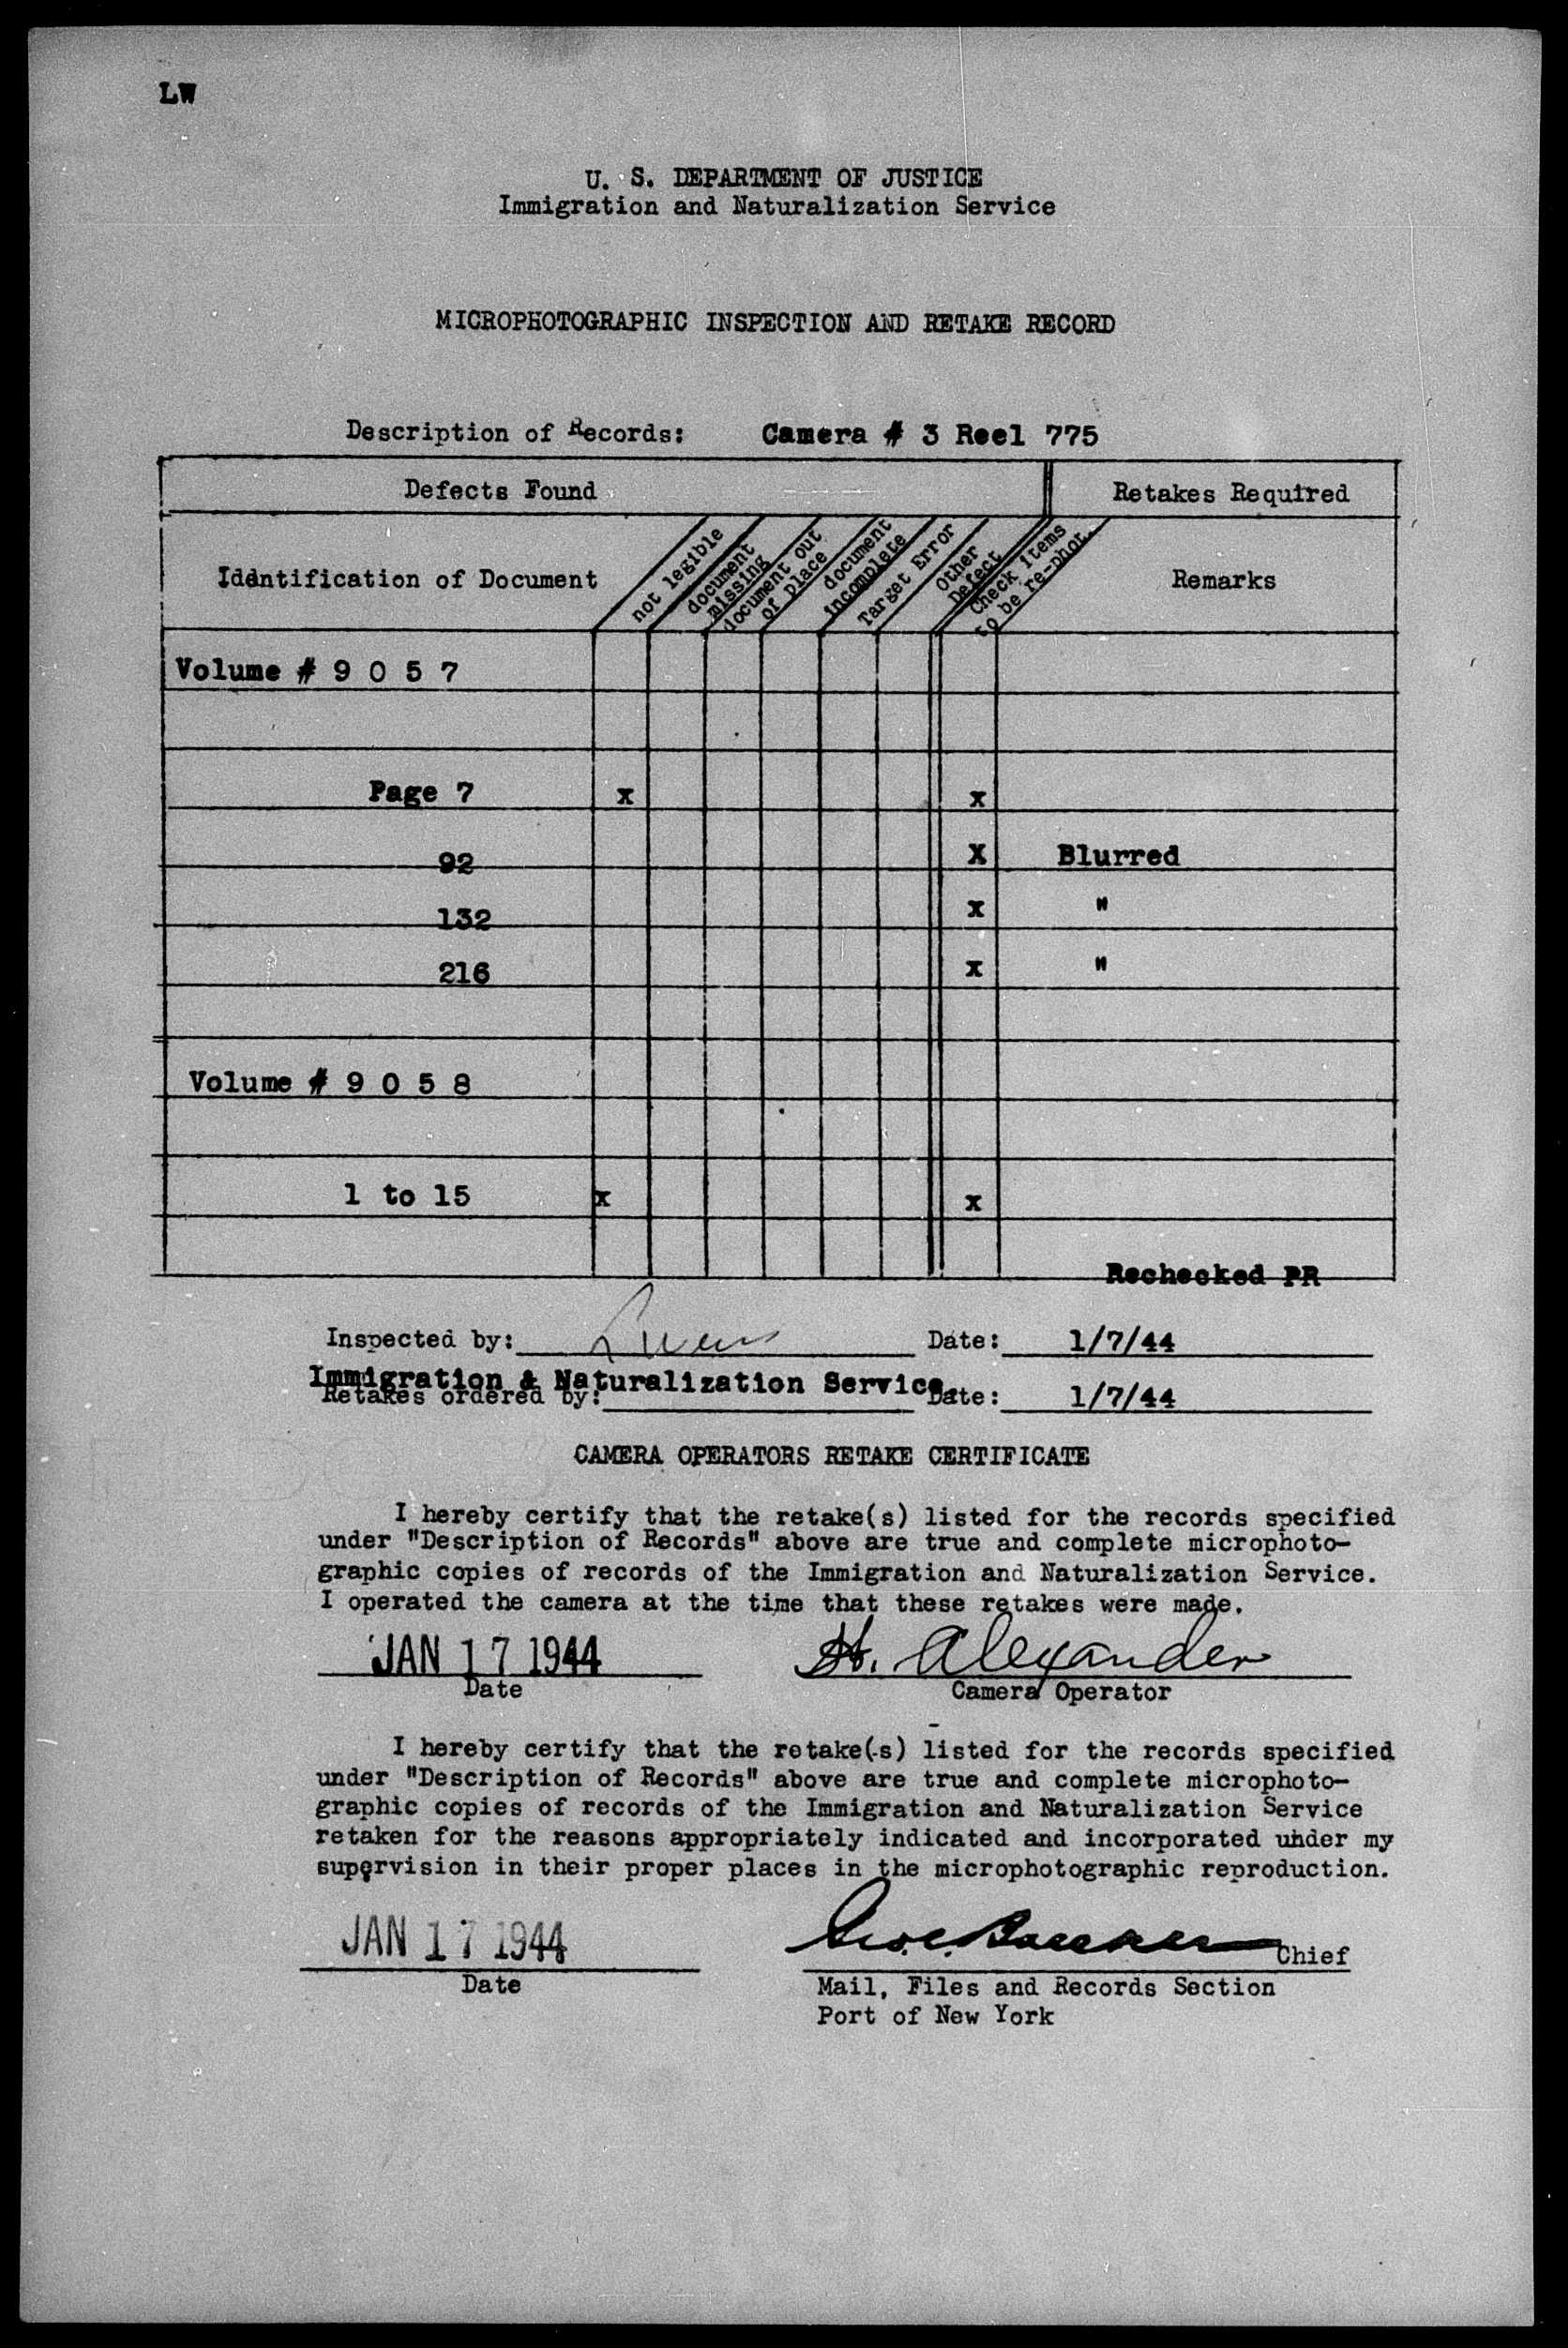 LW
U. S. DEPARTMENT OF JUSTICE
Immigration and Naturalization Service
MICROPHOTOGRAPHIC INSPECTION AND RETAKE RECORD
Description of Records: Camera # 3 Reel 775
Defects Found Retakes Required
Identification of Document
not legible
document missing
document out of place
document incomplete
Target Error
Other Defect
Check items to be re-phot.
Remarks
Volume # 9 0 5 7
Page 7 x x
92 X Blurred
132 x "
216 x "
Volume # 9 0 5 8
1 to 15 x x
Rechecked PR
Inspected by: Date: 1/7/44
Immigration & Naturalization Service
Retakes ordered by: Date: 1/7/44
CAMERA OPERATORS RETAKE CERTIFICATE
I hereby certify that the retake(s) listed for the records specified
under "Description of Records" above are true and complete microphoto-
graphic copies of records of the Immigration and Naturalization Service.
I operated the camera at the time that these retakes were made.
JAN 17 1944 H. Alexander
Date Camera Operator
I hereby certify that the retake(s) listed for the records specified
under "Description of Records" above are true and complete microphoto-
graphic copies of records of the Immigration and Naturalization Service
retaken for the reasons appropriately indicated and incorporated under my
supervision in their proper places in the microphotographic reproduction.
JAN 17 1944 Chief
Date Mail, Files and Records Section
Port of New York